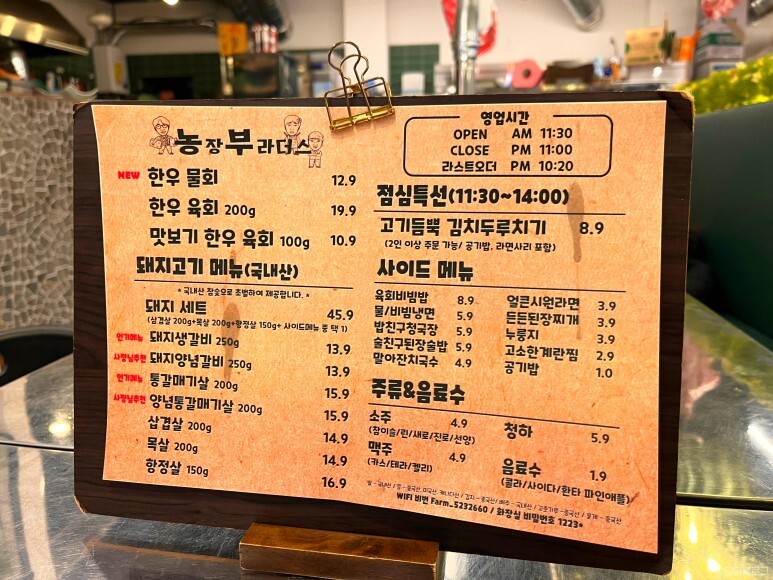 농장부라더스
NEW 한우 물회 12.9
한우 육회 200g 19.9
맛보기 한우 육회 100g 10.9
돼지고기 메뉴(국내산)
* 국내산 참숯으로 초벌하여 제공합니다. *
돼지 세트 45.9
(삼겹살 200g+목살 200g+항정살 150g+ 사이드메뉴 중 택 1)
인기메뉴 돼지생갈비 250g 13.9
사장님추천 돼지양념갈비 250g 13.9
인기메뉴 통갈매기살 200g 15.9
사장님추천 양념통갈매기살 200g 15.9
삼겹살 200g 14.9
목살 200g 14.9
항정살 150g 16.9
영업시간
OPEN AM 11:30
CLOSE PM 11:00
라스트오더 PM 10:20
점심특선(11:30~14:00)
고기듬뿍 김치두루치기 8.9
(2인 이상 주문 가능/ 공기밥, 라면사리 포함)
사이드 메뉴
육회비빔밥 8.9
물/비빔냉면 5.9
밥친구청국장 5.9
술친구된장술밥 5.9
말아잔치국수 4.9
얼큰시원라면 3.9
든든된장찌개 3.9
누룽지 3.9
고소한계란찜 2.9
공기밥 1.0
주류&음료수
소주 4.9
(참이슬/린/새로/진로/선양)
맥주 4.9
(카스/테라/켈리)
청하 5.9
음료수 1.9
(콜라/사이다/환타 파인애플)
쌀 - 국내산 / 콩 - 중국산, 미국산, 캐나다산 / 김치 - 중국산/ 배추 - 국내산 / 고춧가루 - 중국산 / 조개 - 중국산
WIFI 비번 Farm_5232660 / 화장실 비밀번호 1223*